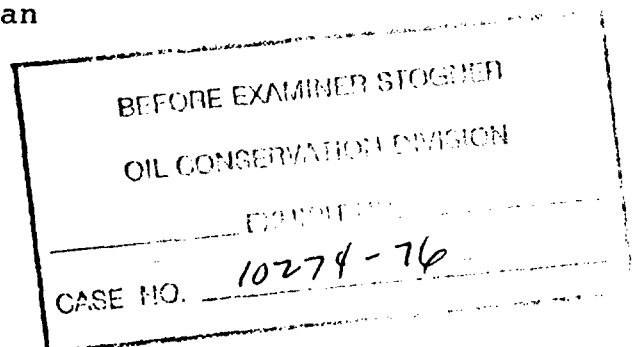 an
BEFORE EXAMINER STOGNER
OIL CONSERVATION DIVISION
CASE NO. 10274-76